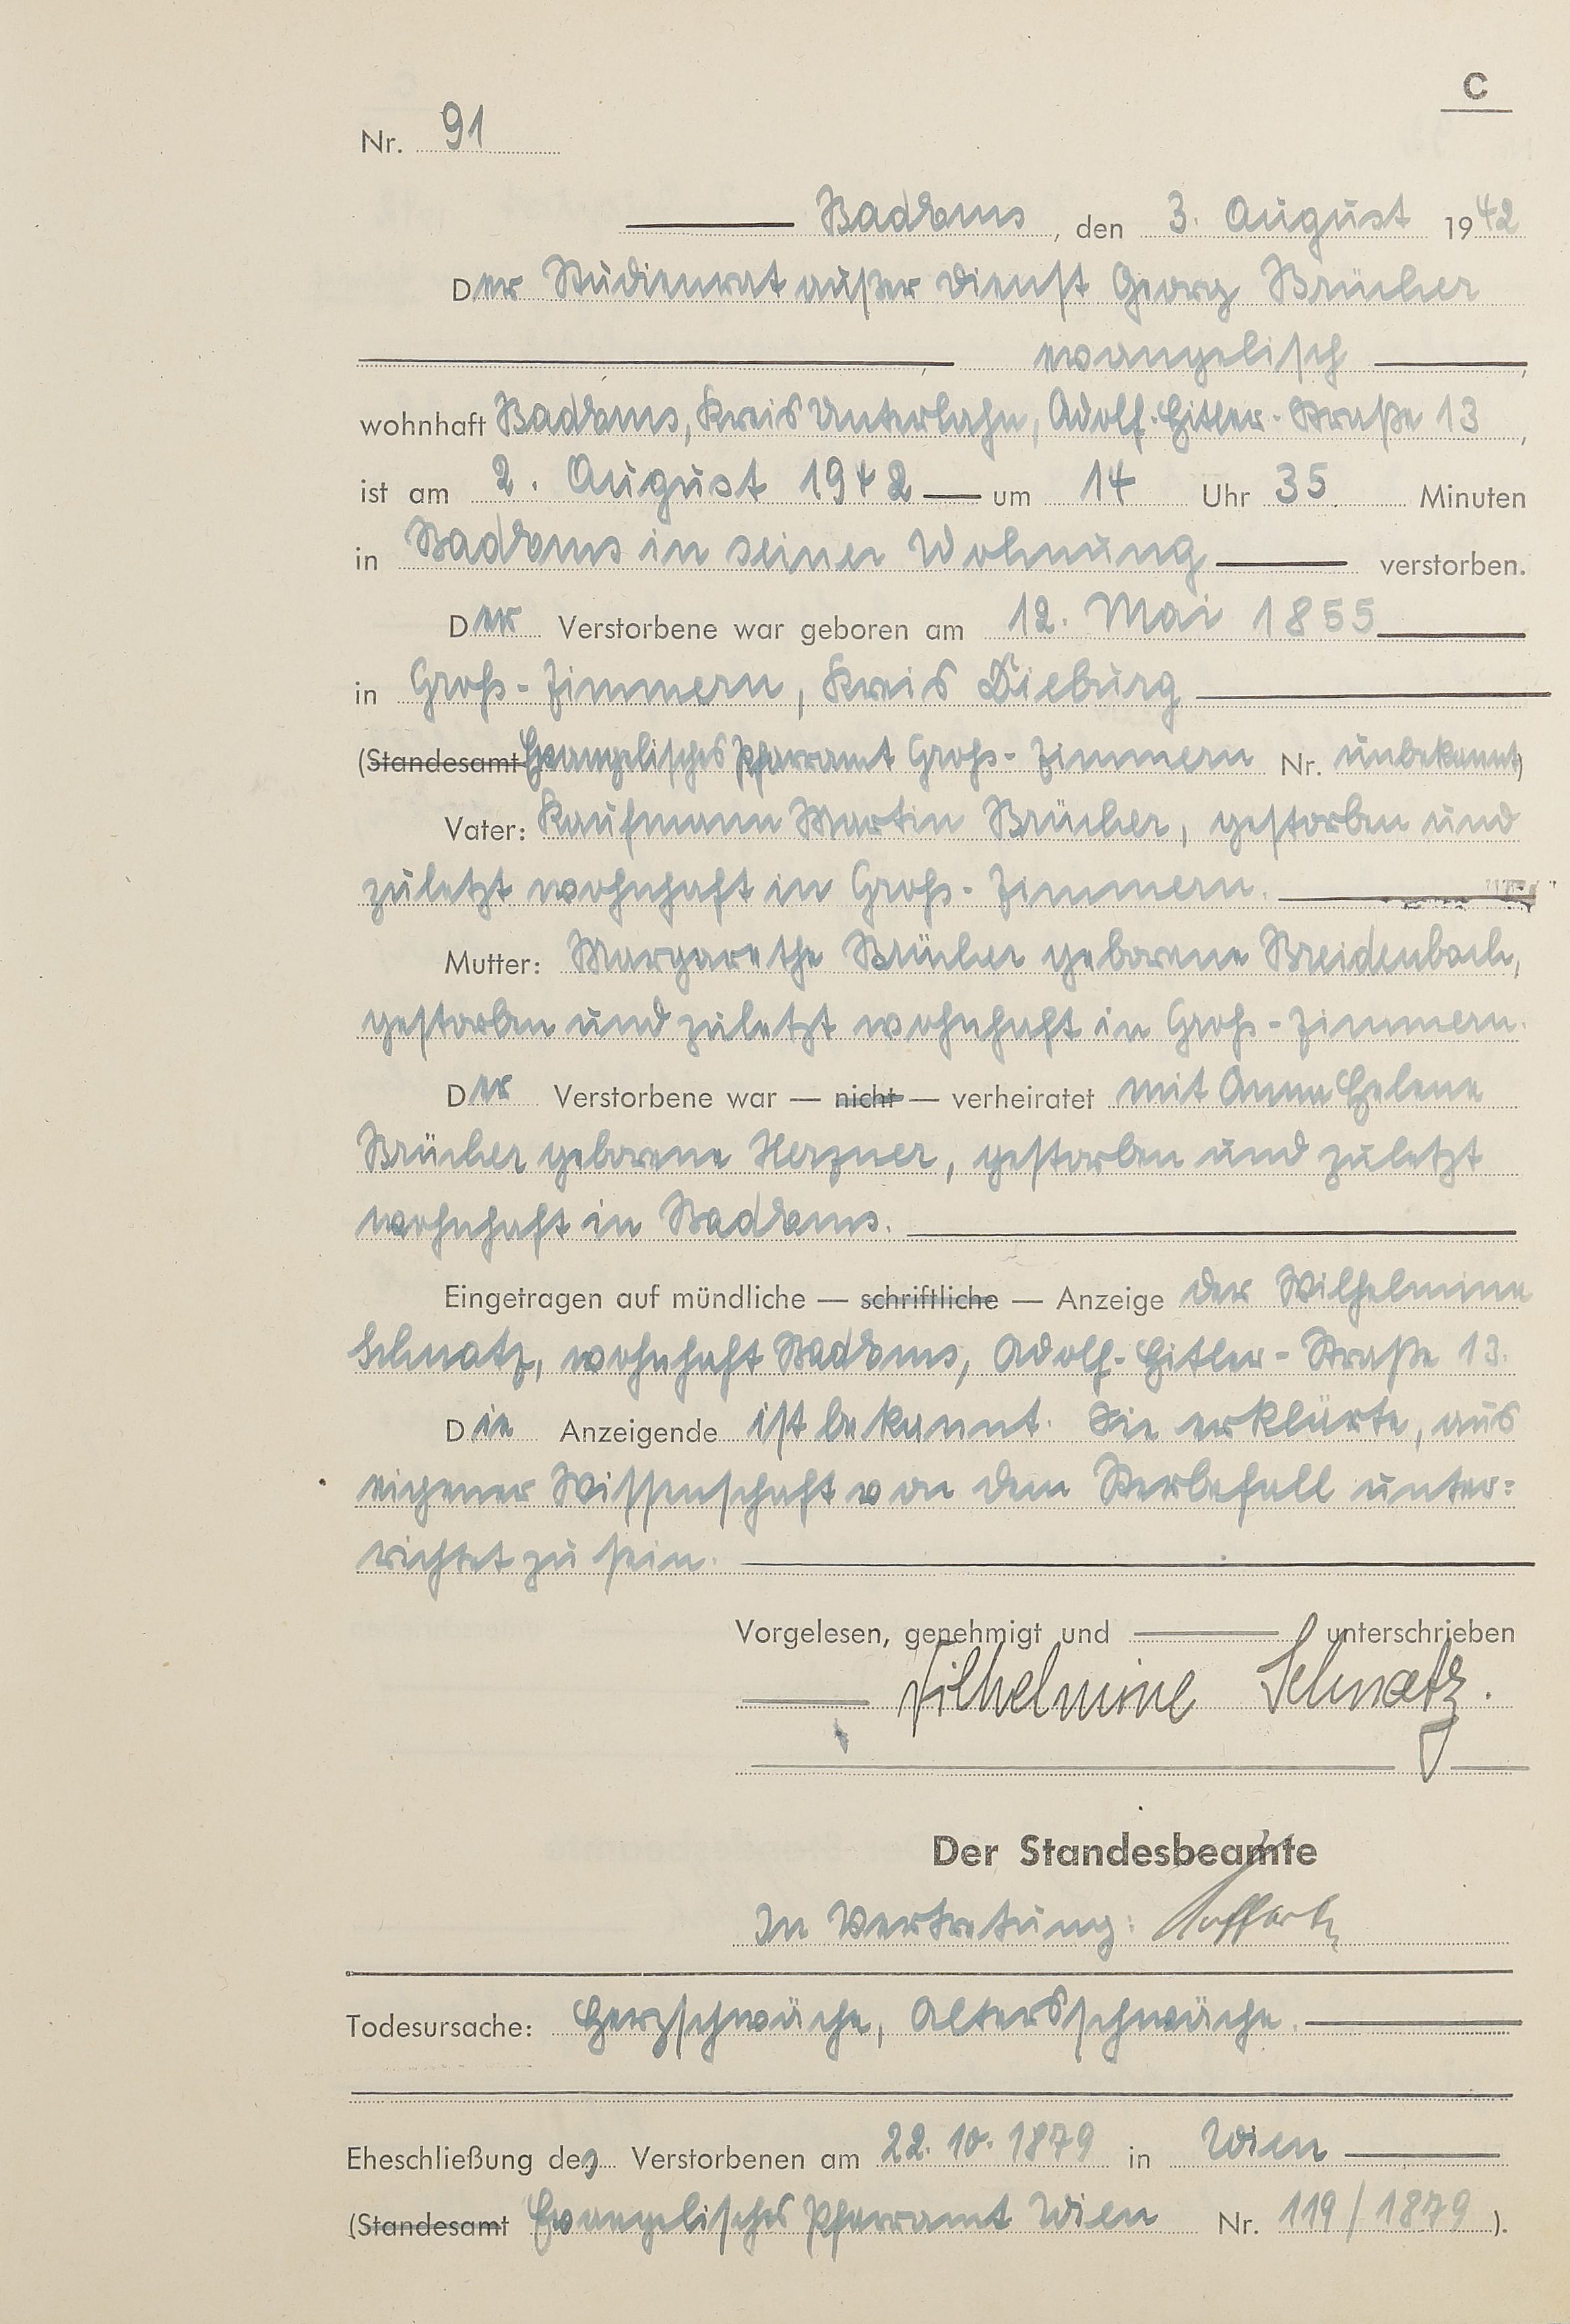 C
Nr. 91
Bad Ems, den 3. August 1942
Der Studienrat außer Dienst Georg Brücher
evangelisch,
wohnhaft Bad Ems, Kreis Unterlahn, Adolf-Hitler-Straße 13,
ist am 2. August 1942 — um 14 Uhr 35 Minuten
in Bad Ems in seiner Wohnung verstorben.
Der Verstorbene war geboren am 12. Mai 1855
in Groß-Zimmern, Kreis Dieburg
(Standesamt Evangelisches Pfarramt Groß-Zimmern Nr. unbekannt)
Vater: Kaufmann Martin Brücher, gestorben und
zuletzt wohnhaft in Groß-Zimmern.
Mutter: Margarethe Brücher geborene Breidenbach,
gestorben und zuletzt wohnhaft in Groß-Zimmern.
Der Verstorbene war — nicht — verheiratet mit Anna Helene
Brücher geborene Herzner, gestorben und zuletzt
wohnhaft in Bad Ems.
Eingetragen auf mündliche — schriftliche — Anzeige der Wilhelmine
Schnatz, wohnhaft Bad Ems, Adolf-Hitler-Straße 13.
Die Anzeigende ist bekannt. Sie erklärte, aus
eigener Wissenschaft von dem Sterbefall unter=
richtet zu sein.
Vorgelesen, genehmigt und unterschrieben
Wilhelmine Schnatz.
Der Standesbeamte
In Vertretung:
Todesursache: Herzschwäche, Altersschwäche.
Eheschließung des Verstorbenen am 22.10.1879 in Wien
(Standesamt Evangelisches Pfarramt Wien Nr. 119/1879).